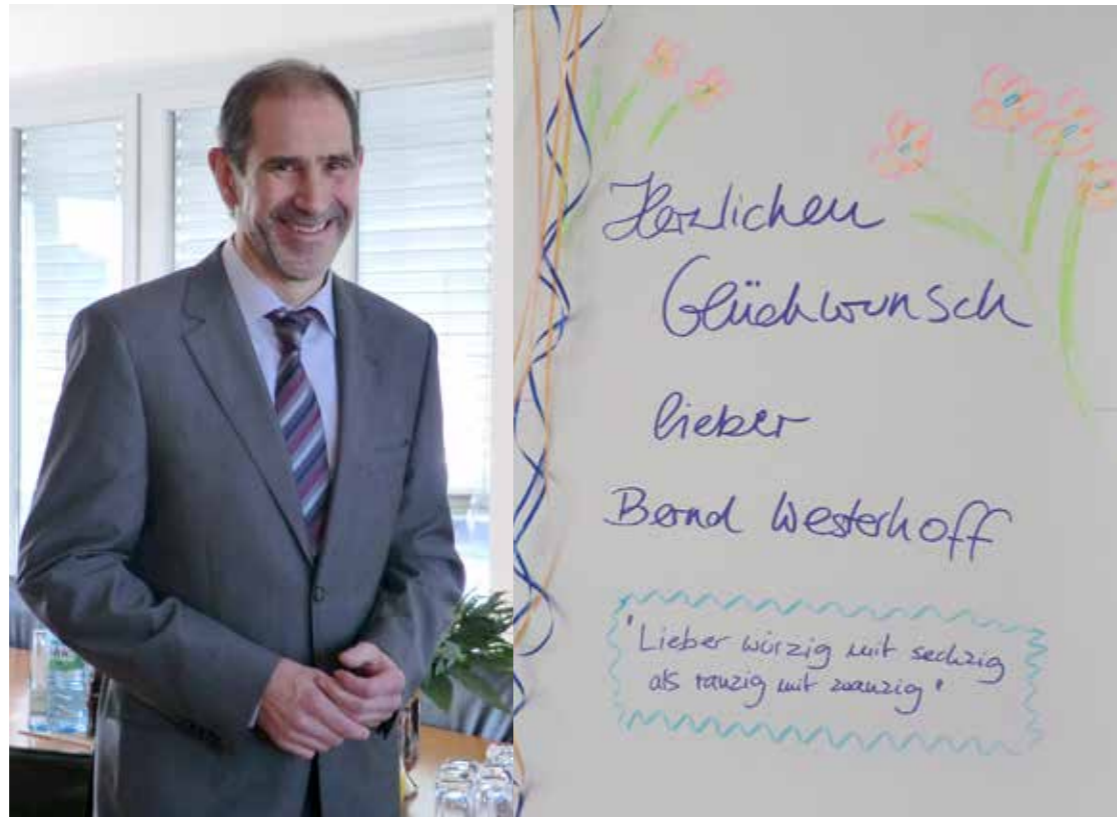 Herzlichen
Glückwunsch
lieber
Bernd Westerhoff
"Lieber würzig mit sechzig
als ranzig mit zwanzig"